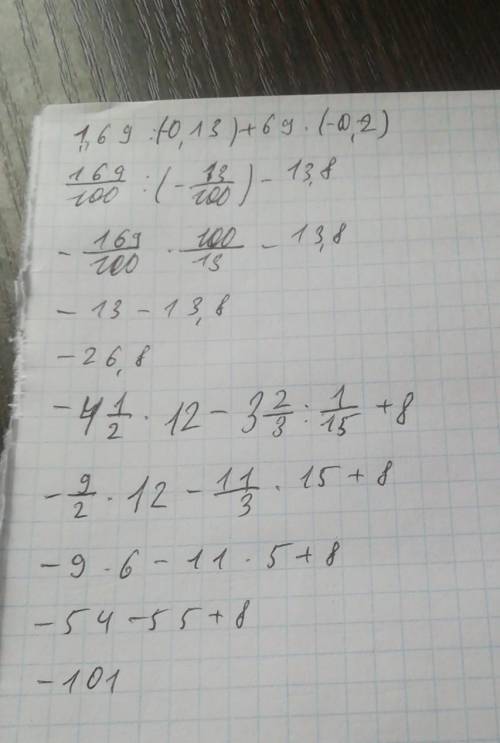 1,69 : (-0,13) + 69 · (-0,2)
169/100 : (-13/100) - 13,8
- 169/100 · 100/13 - 13,8
- 13 - 13,8
- 26,8
- 4 1/2 · 12 - 3 2/3 : 1/15 + 8
- 9/2 · 12 - 11/3 · 15 + 8
- 9 · 6 - 11 · 5 + 8
- 54 - 55 + 8
- 101